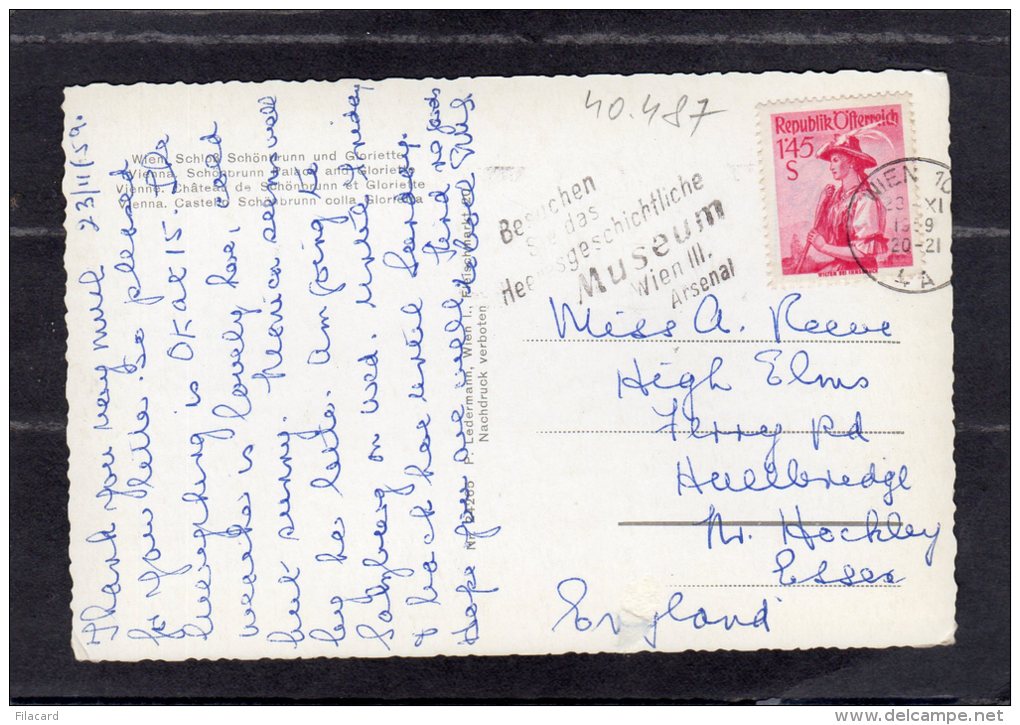 40.487
23/11/59.
Wien, Schloß Schönbrunn und Gloriette
Vienna, Schönbrunn Palace and Gloriette
Vienna, Château de Schönbrunn et Gloriette
Vienna, Castello Schönbrunn colla Glorietta
Thank you very much
for your letter. So pleased
everything is OK at 15. The
weather is lovely here, cold
but sunny. Maria sends all
her Am going to
Salzburg on Wed. until Friday
& back here until Sunday.
Hope you are well
Kind regards
Nr. 24266 P. Ledermann, Wien I., Fleischmarkt 20
Nachdruck verboten
Besuchen
Sie das
Heeresgeschichtliche
Museum
Wien III.
Arsenal
Republik Österreich
1'45
S
WILTEN BEI INNSBRUCK
WIEN 10
23. XI
1959
20-21
4A
Miss A. Reeve
High Elms
Ferry Rd
Hullbridge
Nr. Hockley
Essex
England
Filacard
delcampe.net